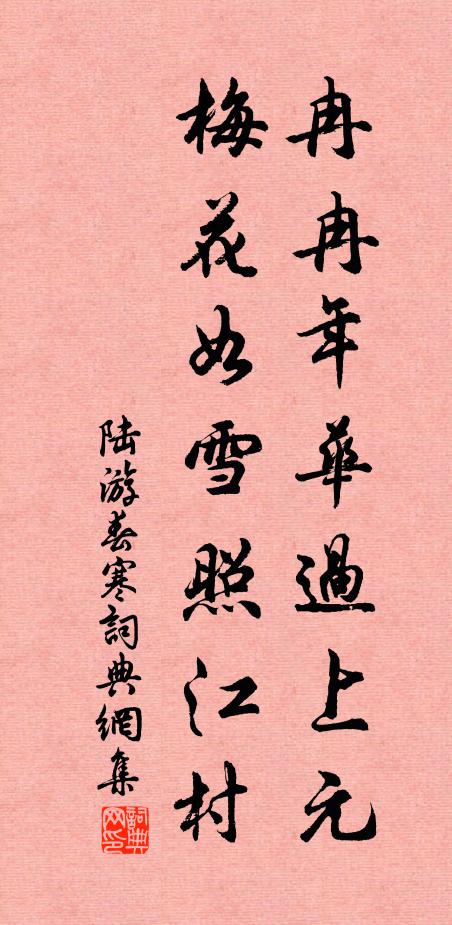 冉冉年華過上元
梅花如雪照江村
陸游春寒詞典網集
詞典网印